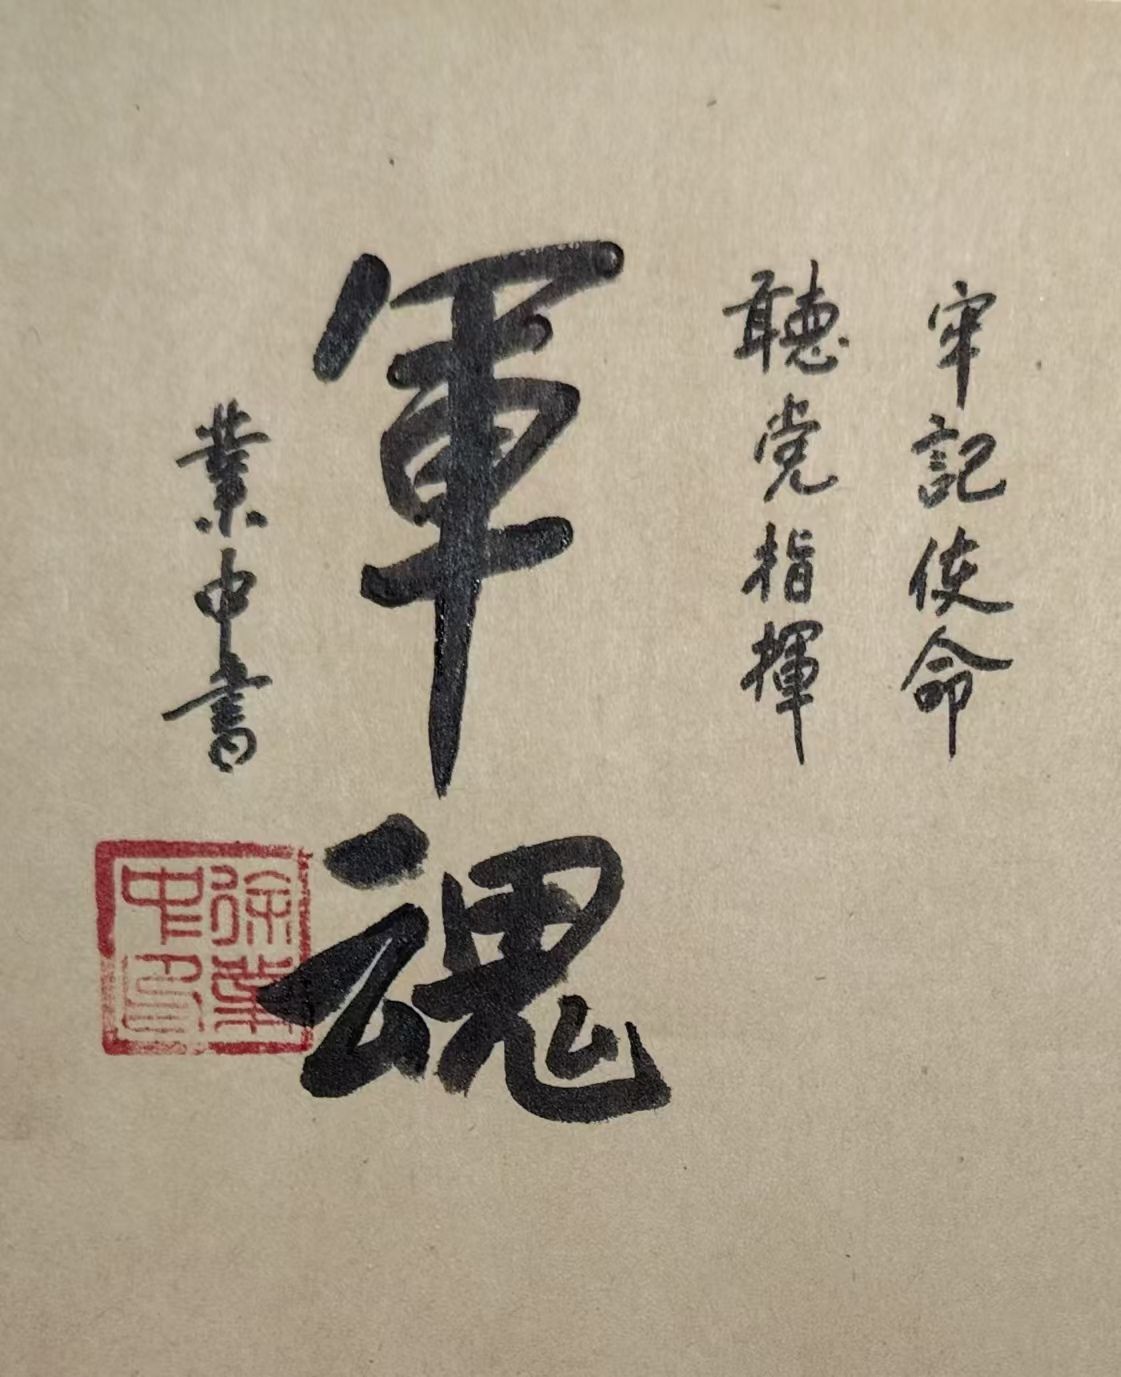 牢記使命
聽党指揮
軍魂
業中書
徐業中印